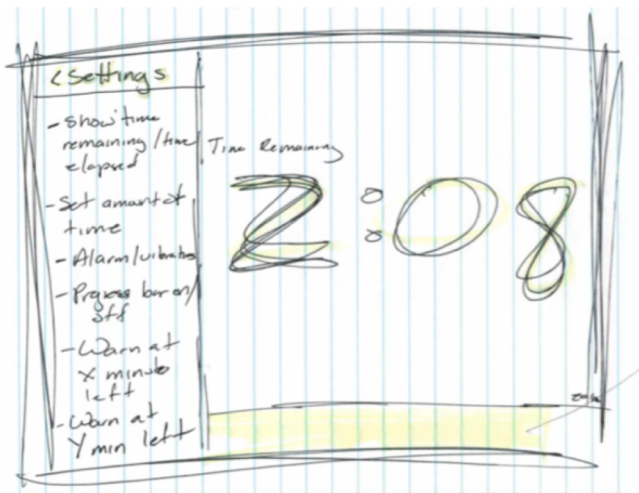 < Settings
- Show time
remaining / time
elapsed
- Set amount of
time
- Alarm/vibrate
- Progress bar on/
off
- Warn at
X minute
left
- Warn at
Y min left
Time Remaining
2:08